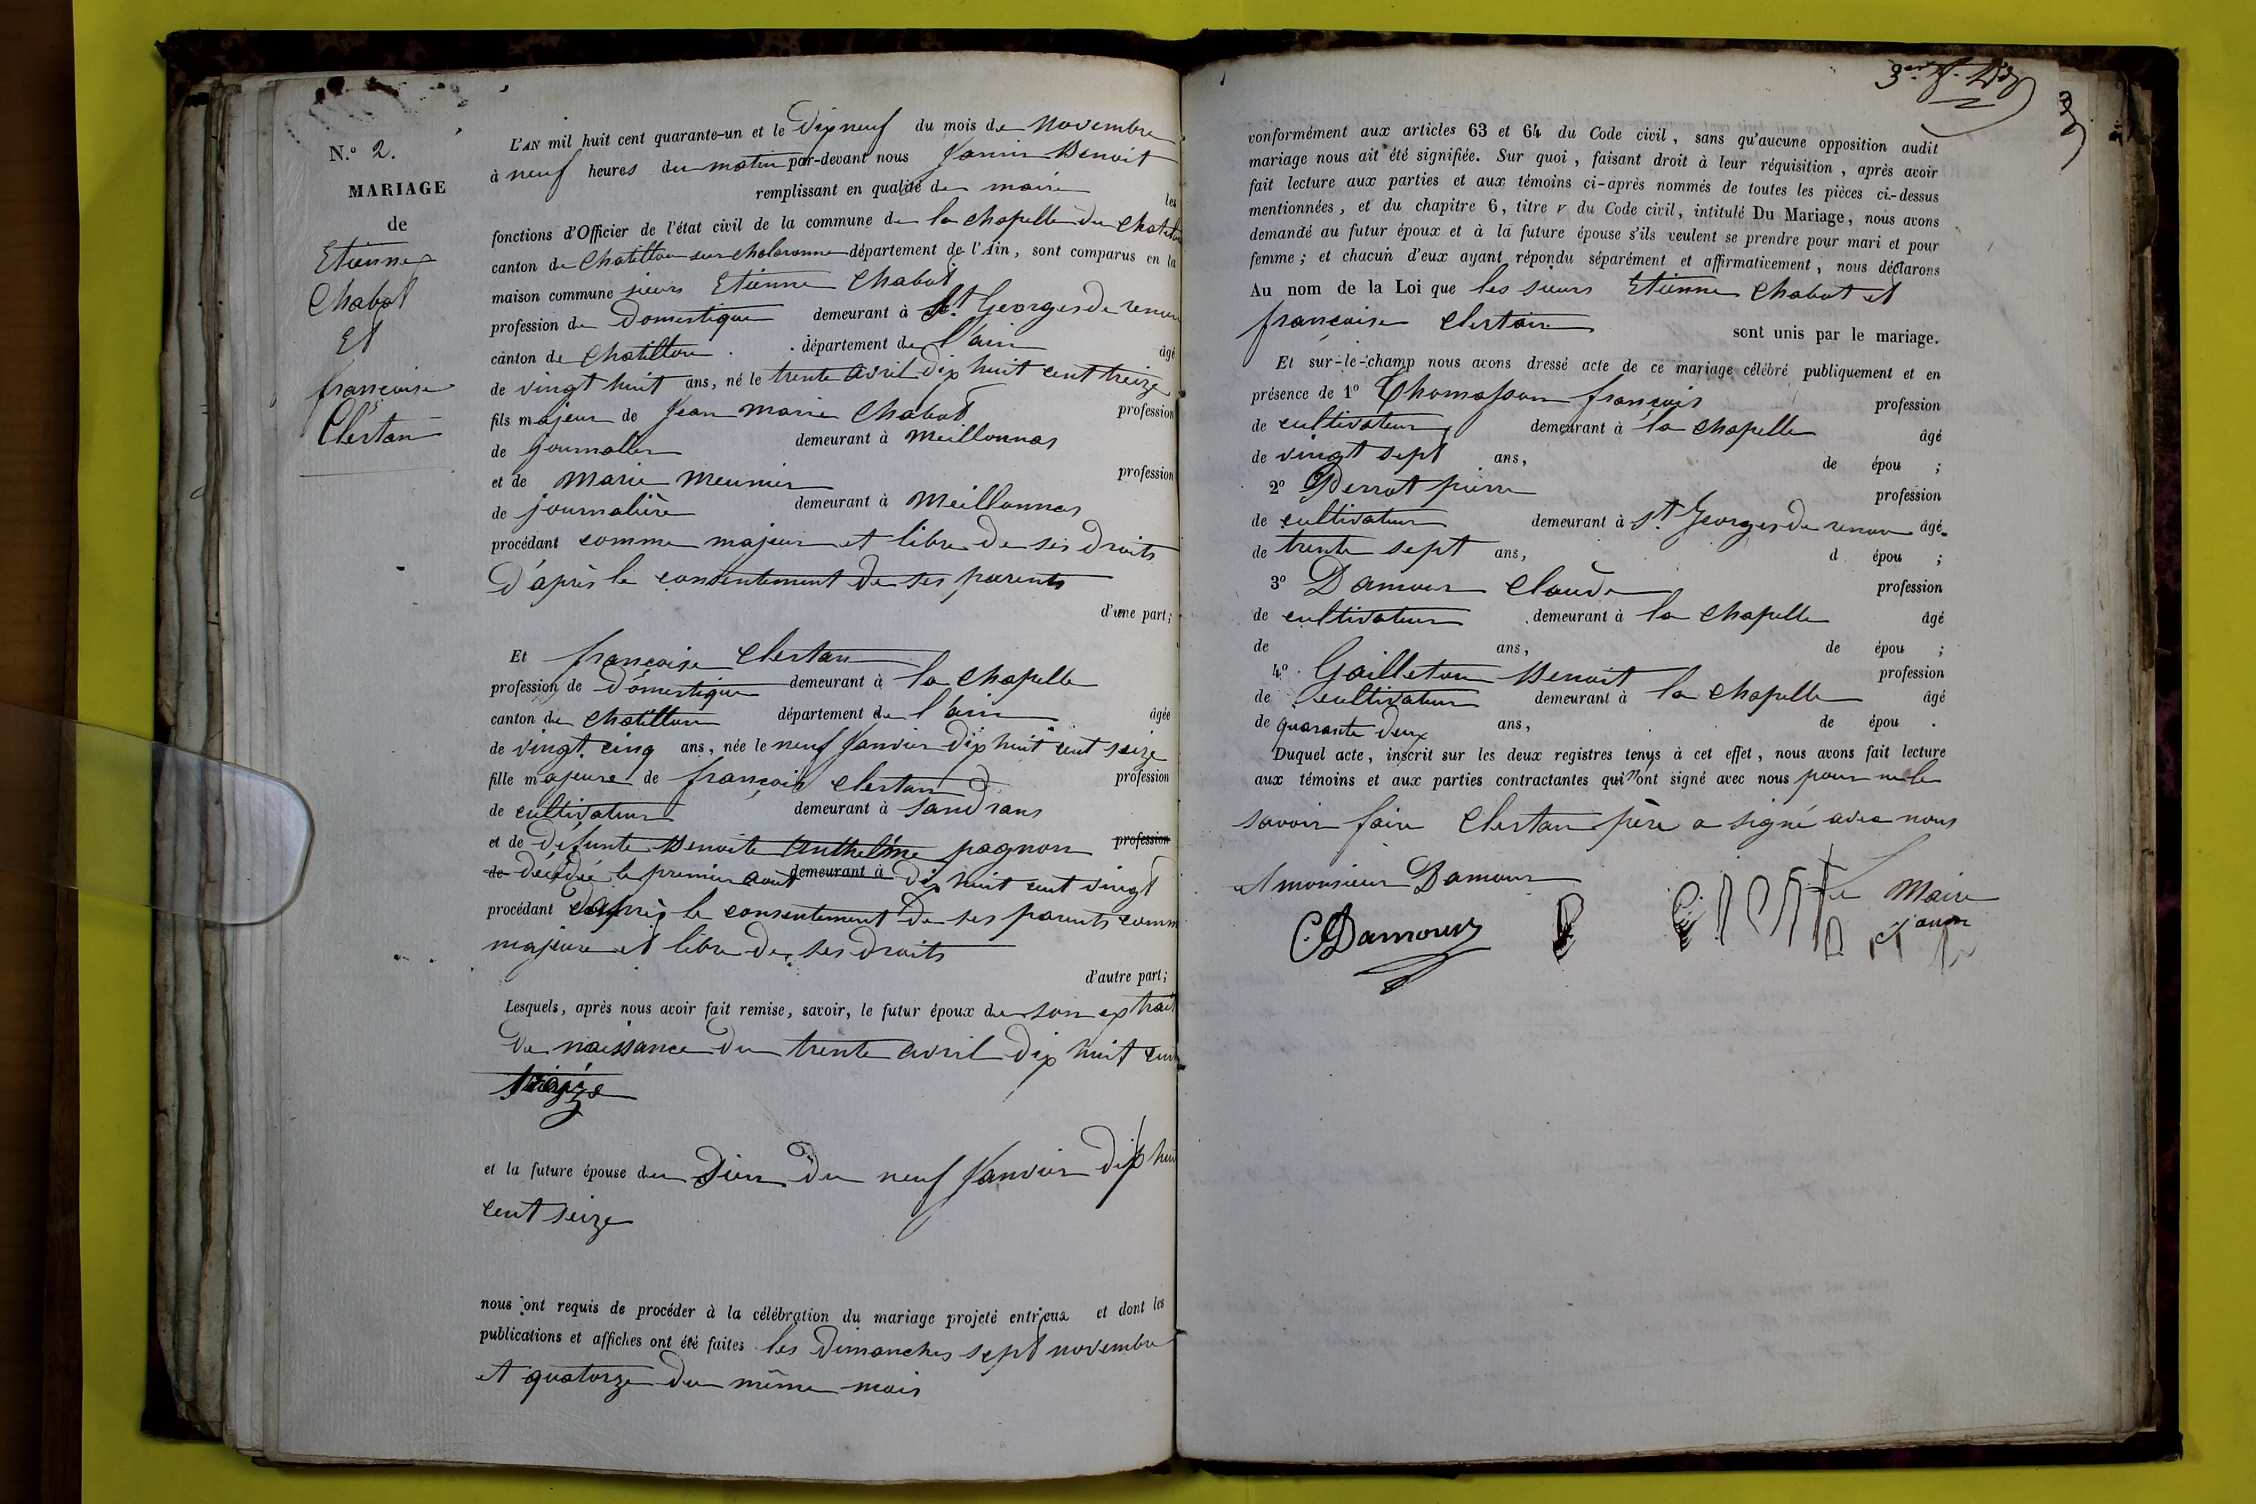 N.o 2.
MARIAGE
de
Etienne
Chabot
Et
françoise
Clertan
L'AN mil huit cent quarante-un et le dix neuf du mois de novembre
à neuf heures du matin par-devant nous Janin Benoit
remplissant en qualité de maire les
fonctions d'Officier de l'état civil de la commune de la chapelle du chatelard
canton de Chatillon sur chalaronne département de l'Ain, sont comparus en la
maison commune sieurs Etienne Chabot
profession de Domestique demeurant à St. Georges de renon
canton de Chatillon département de l'ain âgé
de vingt huit ans, né le trente avril dix huit cent treize
fils majeur de Jean marie Chabot profession
de Journalier demeurant à meillonnas
et de marie meunier profession
de journalière demeurant à meillonnas
procédant comme majeur et libre de ses droits
d'après le consentement de ses parents
d'une part;
Et françoise Clertan
profession de domestique demeurant à la chapelle
canton de chatillon département de l'ain âgée
de vingt cinq ans, née le neuf Janvier dix huit cent seize
fille majeure de françois clertan profession
de cultivateur demeurant à sandrans
et de défunte Benoite Anthelme pagnon profession
de décédée le premier aout demeurant à dix huit cent vingt
procédant d'après le consentement de ses parents comme
majeure et libre de ses droits
d'autre part;
Lesquels, après nous avoir fait remise, savoir, le futur époux de son extrait
de naissance du trente avril dix huit cent
treize
et la future épouse du sien du neuf Janvier dix huit
cent seize
nous ont requis de procéder à la célébration du mariage projeté entr'eux et dont les
publications et affiches ont été faites les dimanches sept novembre
et quatorze du même mois
3
conformément aux articles 63 et 64 du Code civil, sans qu'aucune opposition audit
mariage nous ait été signifiée. Sur quoi, faisant droit à leur réquisition, après avoir
fait lecture aux parties et aux témoins ci-après nommés de toutes les pièces ci-dessus
mentionnées, et du chapitre 6, titre v du Code civil, intitulé Du Mariage, nous avons
demandé au futur époux et à la future épouse s'ils veulent se prendre pour mari et pour
femme; et chacun d'eux ayant répondu séparément et affirmativement, nous déclarons
Au nom de la Loi que les sieurs Etienne Chabot et
françoise Clertan sont unis par le mariage.
Et sur-le-champ nous avons dressé acte de ce mariage célébré publiquement et en
présence de 1o Thomasson françois profession
de cultivateur demeurant à la chapelle âgé
de vingt sept ans, de épou ;
2o Perrat pierre profession
de cultivateur demeurant à St Georges de renon âgé
de trente sept ans, d épou ;
3o Damour Claude profession
de cultivateur demeurant à la chapelle âgé
de ans, de épou ;
4o Gailleton Benoit profession
de cultivateur demeurant à la chapelle âgé
de quarante deux ans, de épou .
Duquel acte, inscrit sur les deux registres tenus à cet effet, nous avons fait lecture
aux témoins et aux parties contractantes qui n'ont signé avec nous pour ne le
savoir faire Clertan père a signé avec nous
et monsieur Damour
C. Damour
Le Maire
Janin